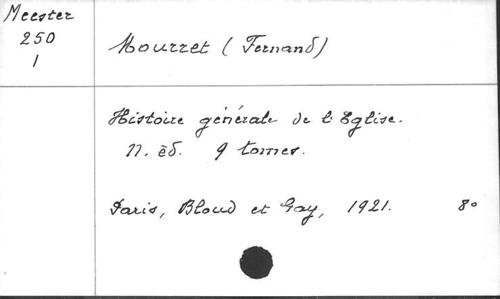 Meester
250
1
Mourret (Fernand)
Histoire générale de l'Eglise.
N. éd. 9 tomes.
Paris, Bloud et Gay, 1921. 8°